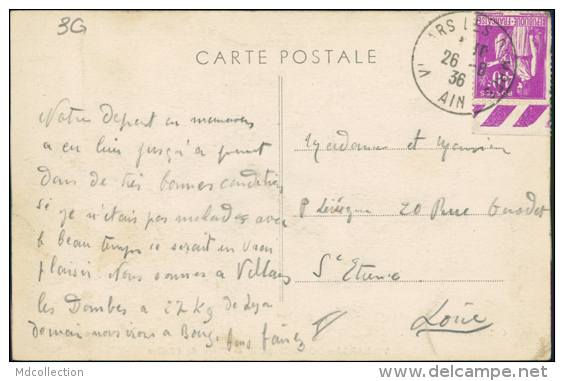 3G
CARTE POSTALE
ARS LES
26 - 8
36
AIN
POSTES
Notre depart en
a eu lieu jusqu'a present
dans de très bonnes conditions
si je n'étais pas malade avec
le beau temps ce serait un vrai
plaisir. Nous sommes a Villars
les Dombes a 27 Kg de Lyon
demain nous irons a Bourg.
Madame et Monsieur
20 Rue
St Etienne
Loire
Mdcollection
delcampe.net